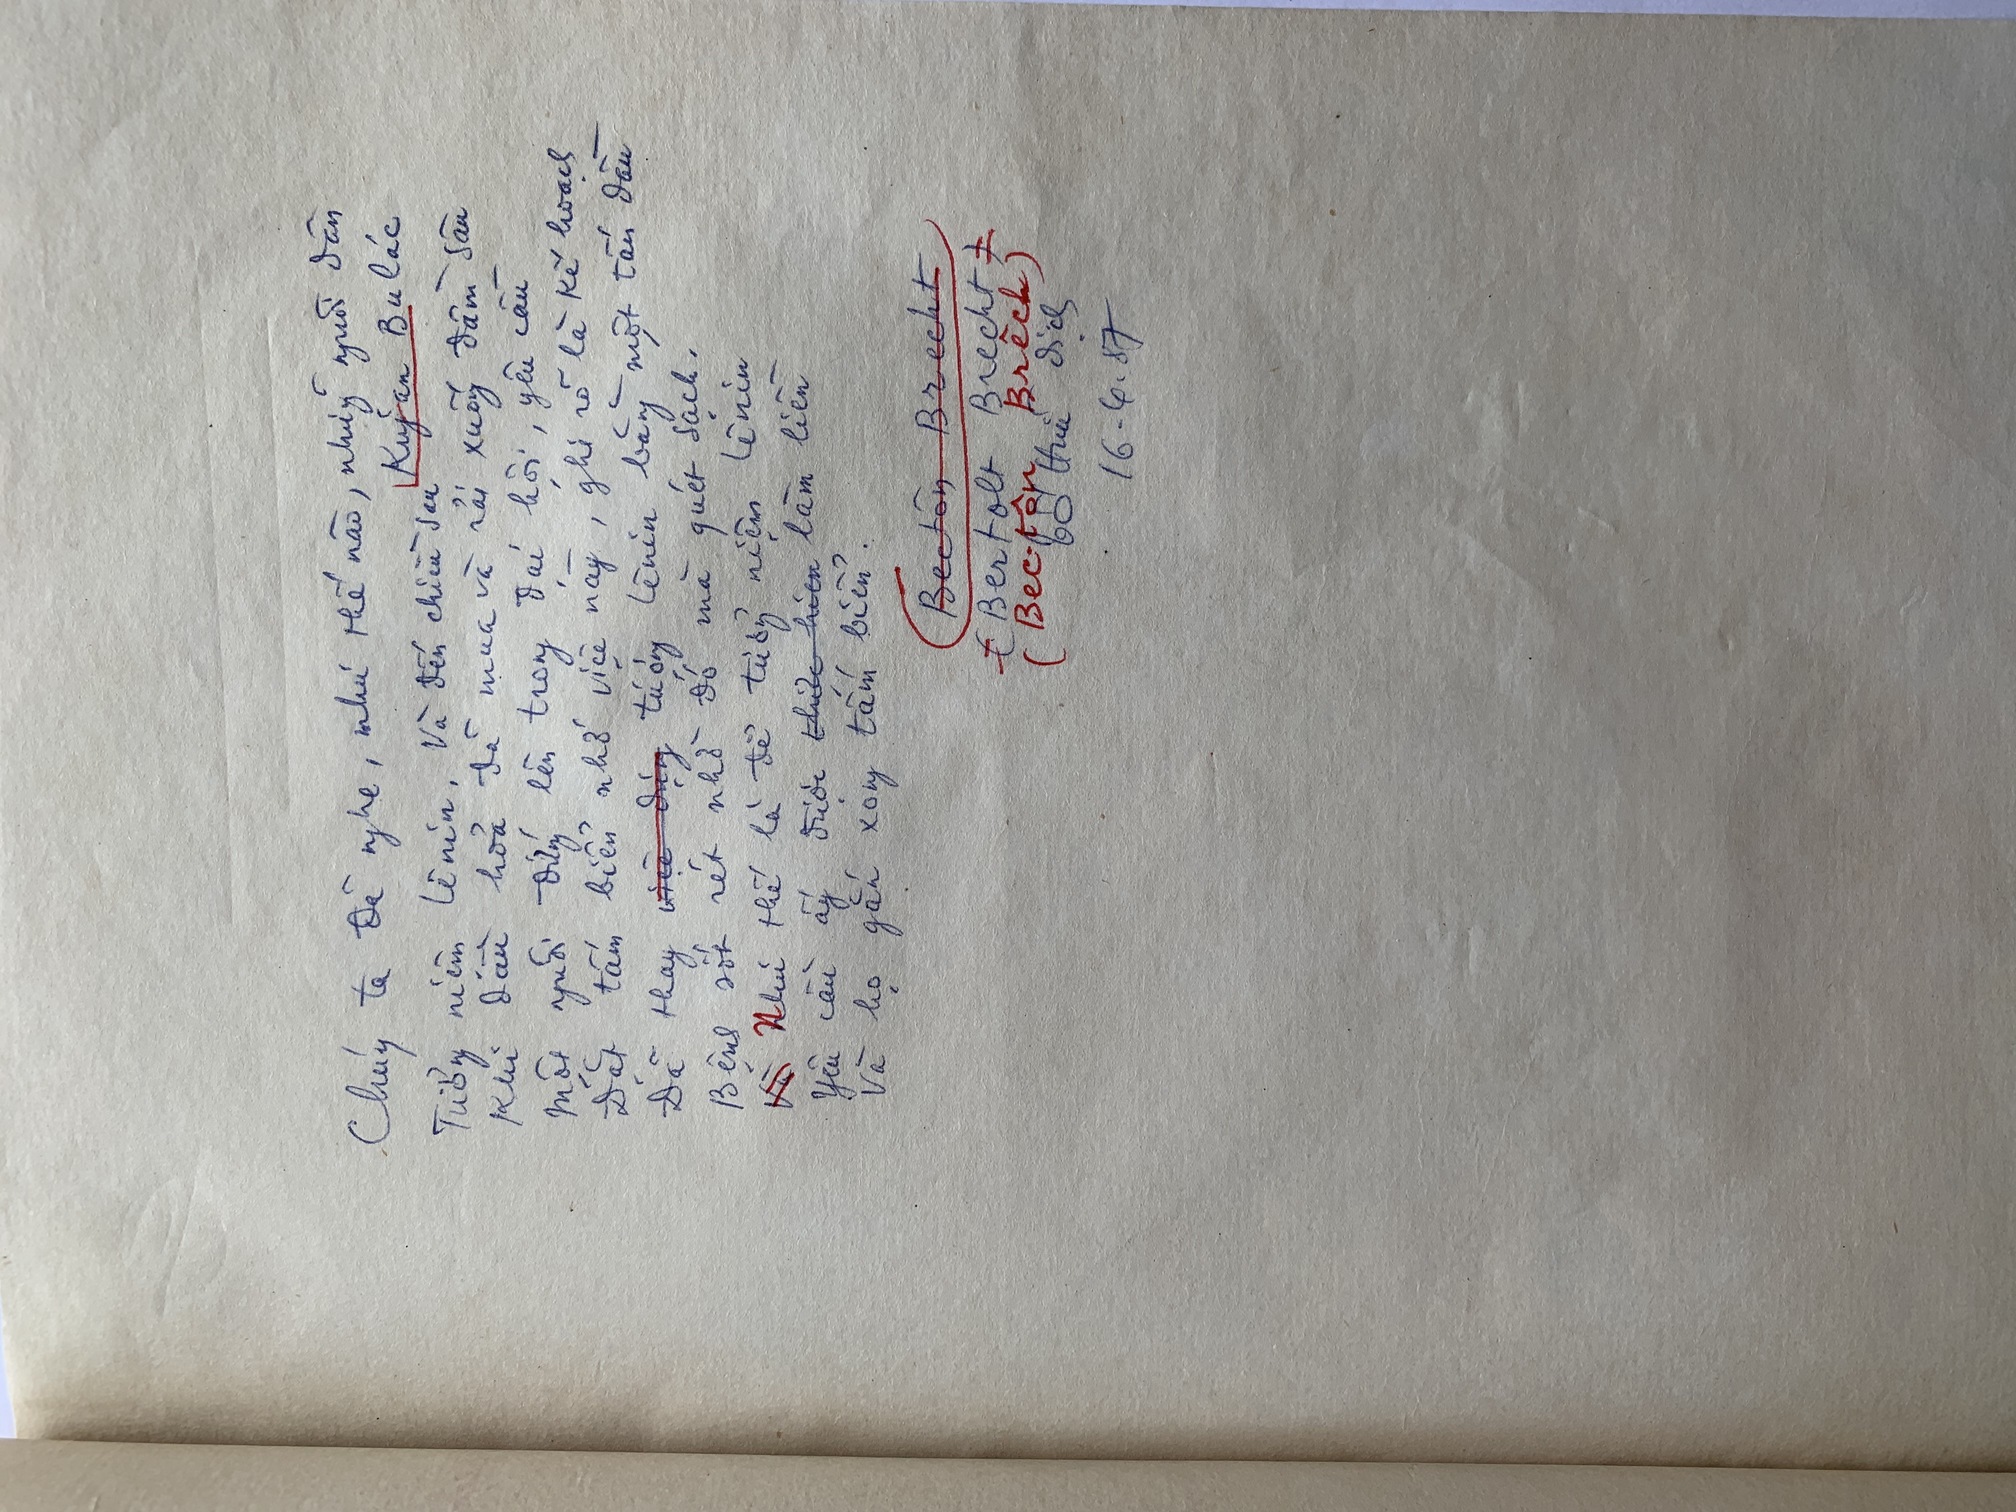 Chúng ta đã nghe, như thế nào, những người dân
Kuyan Bulác
Tưởng niệm Lênin. Và đến chiều sau
Khi dầu hoả đã mua và rải xuống đầm sâu
Một người đứng lên trong đại hội, yêu cầu
Đặt tấm biển nhớ việc này, ghi rõ là kế hoạch
Đã thay việc dựng tượng Lênin bằng một tấn dầu
Bệnh sốt rét nhờ đó mà quét sạch.
Và Như thế là để tưởng niệm Lênin
Yêu cầu ấy được thực hiện làm liền
Và họ gắn xong tấm biển.
Bectôn Brecht
(Bertolt Brecht)
(Bectôn Brếch)
dịch
16-4-87